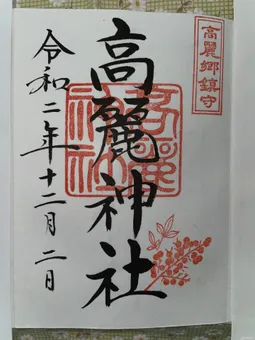 高麗郷鎮守
高麗神社
令和二年十二月二日
高麗
神社